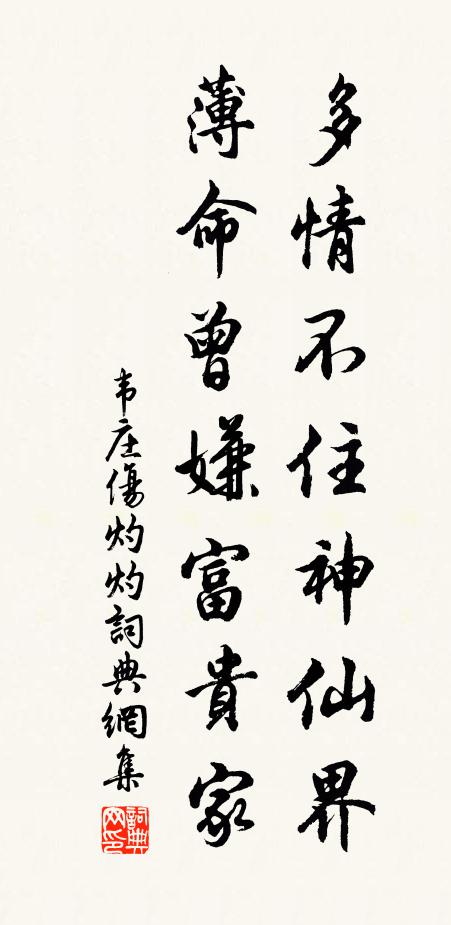 多情不住神仙界
薄命曾嫌富貴家
韦庄傷灼灼詞典網集
詞典網印